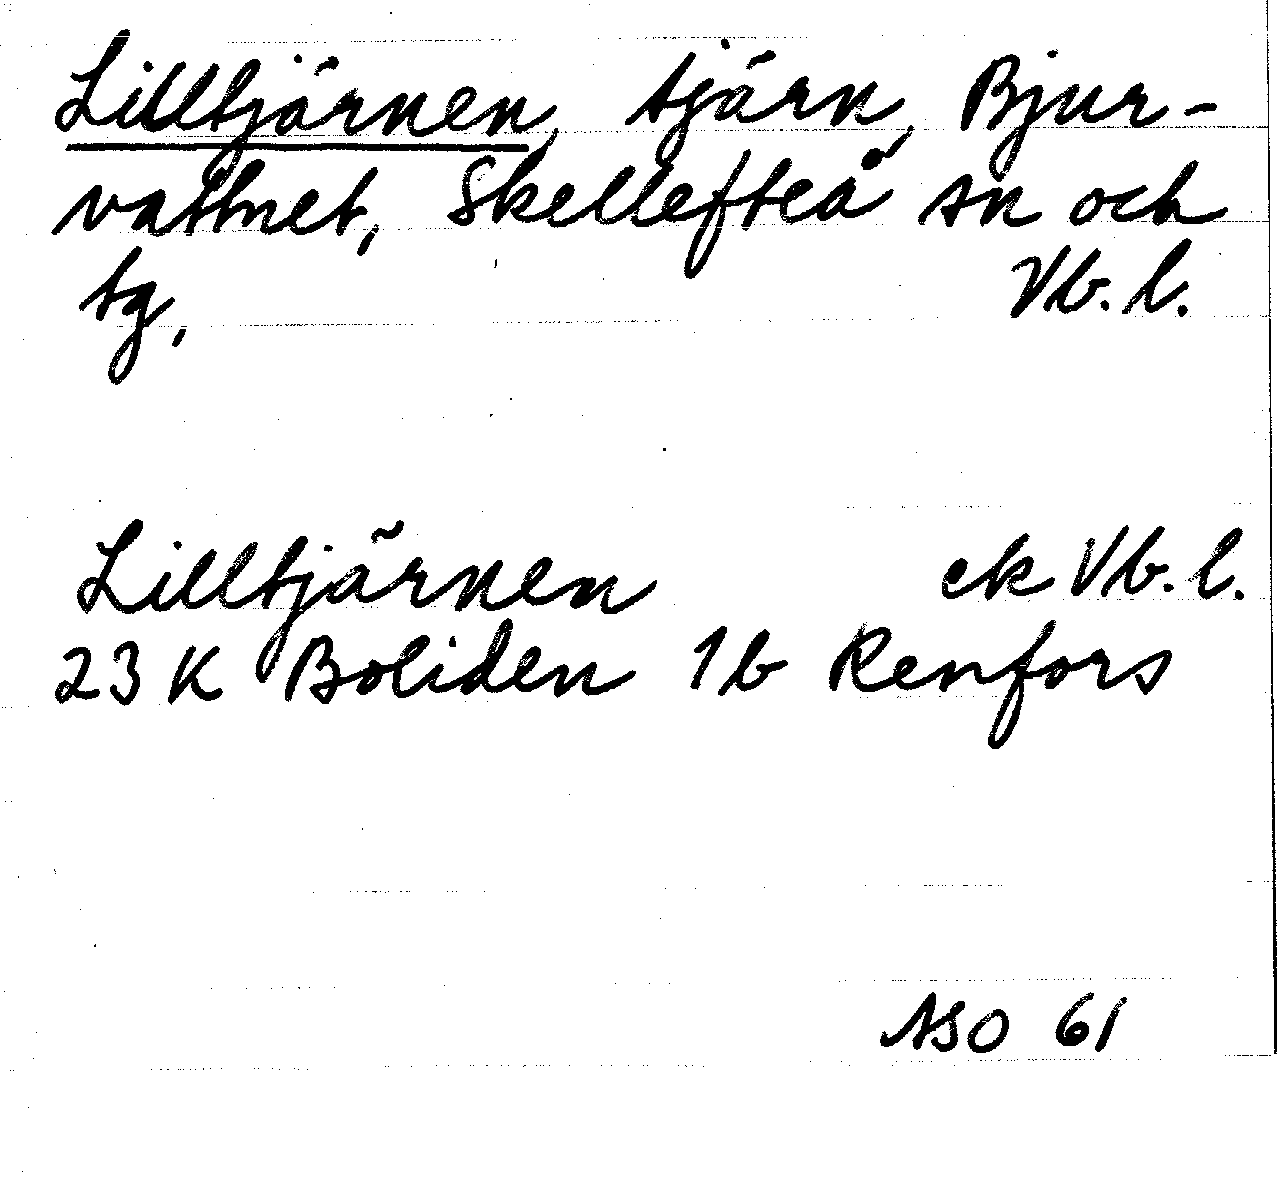 Lilltjärnen, tjärn, Bjur-
vattnet, Skellefteå sn och
tg,
Vb. l.
Lilltjärnen ek Vb. l.
23 K Boliden 1b Renfors
ASO 61